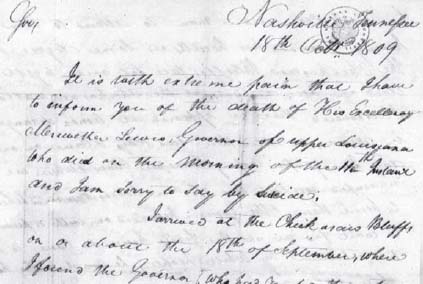 Sir,
Nashville Tennessee
18th Octr 1809
It is with extreme pain that I have
to inform you of the death of His Excellency
Meriwether Lewis, Governor of upper Louisiana
who died on the morning of the 11th Instant
and I am sorry to say by Suicide.
I arrived at the Chickasaws Bluffs
on or about the 18th of September, where
I found the Governor, who had